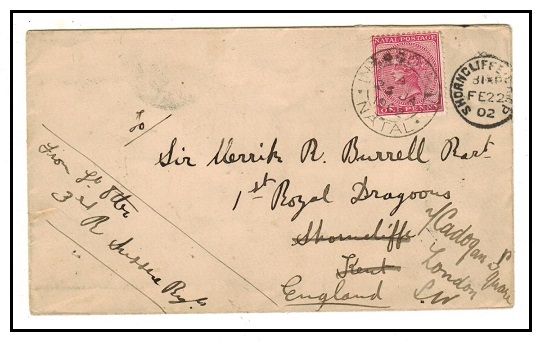 NATAL POSTAGE
ONE PENNY
NATAL
SHORNCLIFFE
FE 22
02
To/
Sir Merrik R. Burrell Bart
1st Royal Dragoons
Shorncliffe
Kent
England
Cadogan Square
London
S.W
From Lt
3rd R Sussex Regt